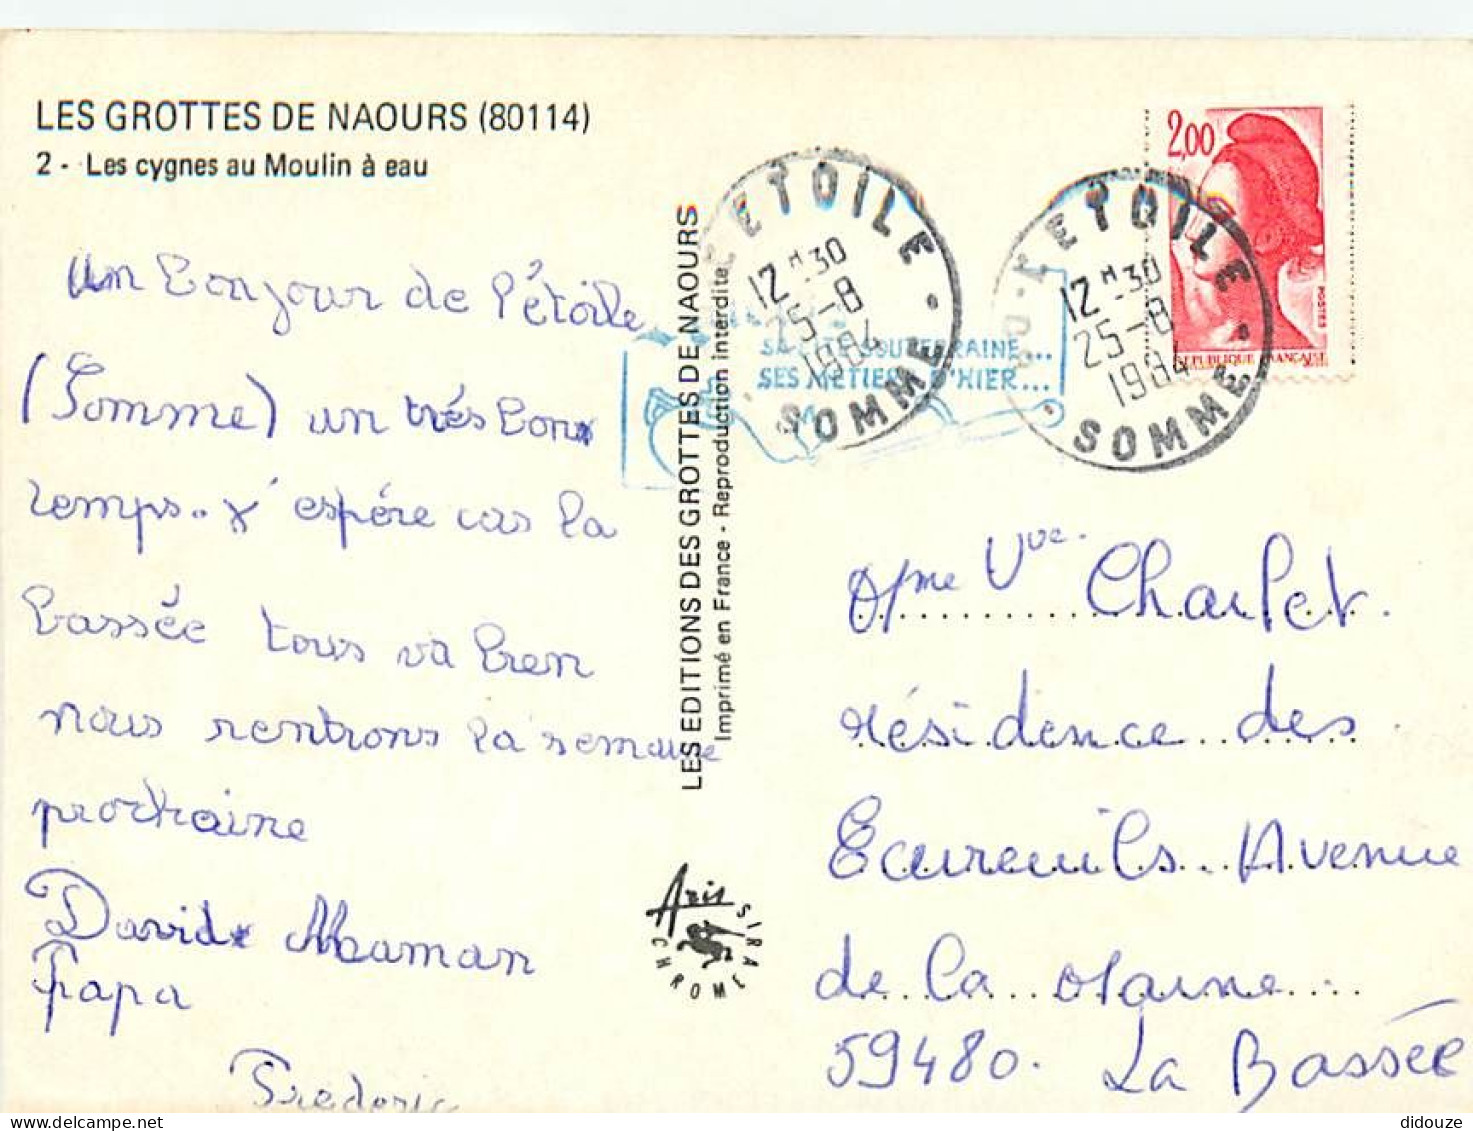 LES GROTTES DE NAOURS (80114)
2 - Les cygnes au Moulin à eau
un bonjour de l'étoile
(Somme) un trés bon
temps. j'espére cas la
bassée tous va bien
nous rentrons la semaine
prochaine
David Maman
Papa
Frederic
LES EDITIONS DES GROTTES DE NAOURS
Imprimé en France - Reproduction interdite
Aris
CHROME SIRAJ
L'ETOILE
12H30
25-8
1984
SOMME
SA CITE SOUTERRAINE...
SES METIERS D'HIER...
80 - L'ETOILE
12H30
25-8
1984
SOMME
2,00
POSTES
REPUBLIQUE FRANÇAISE
Mme Vve Charlet.
résidence des
Ecureuils Avenue
de la Marne
59480. La Bassée
didouze